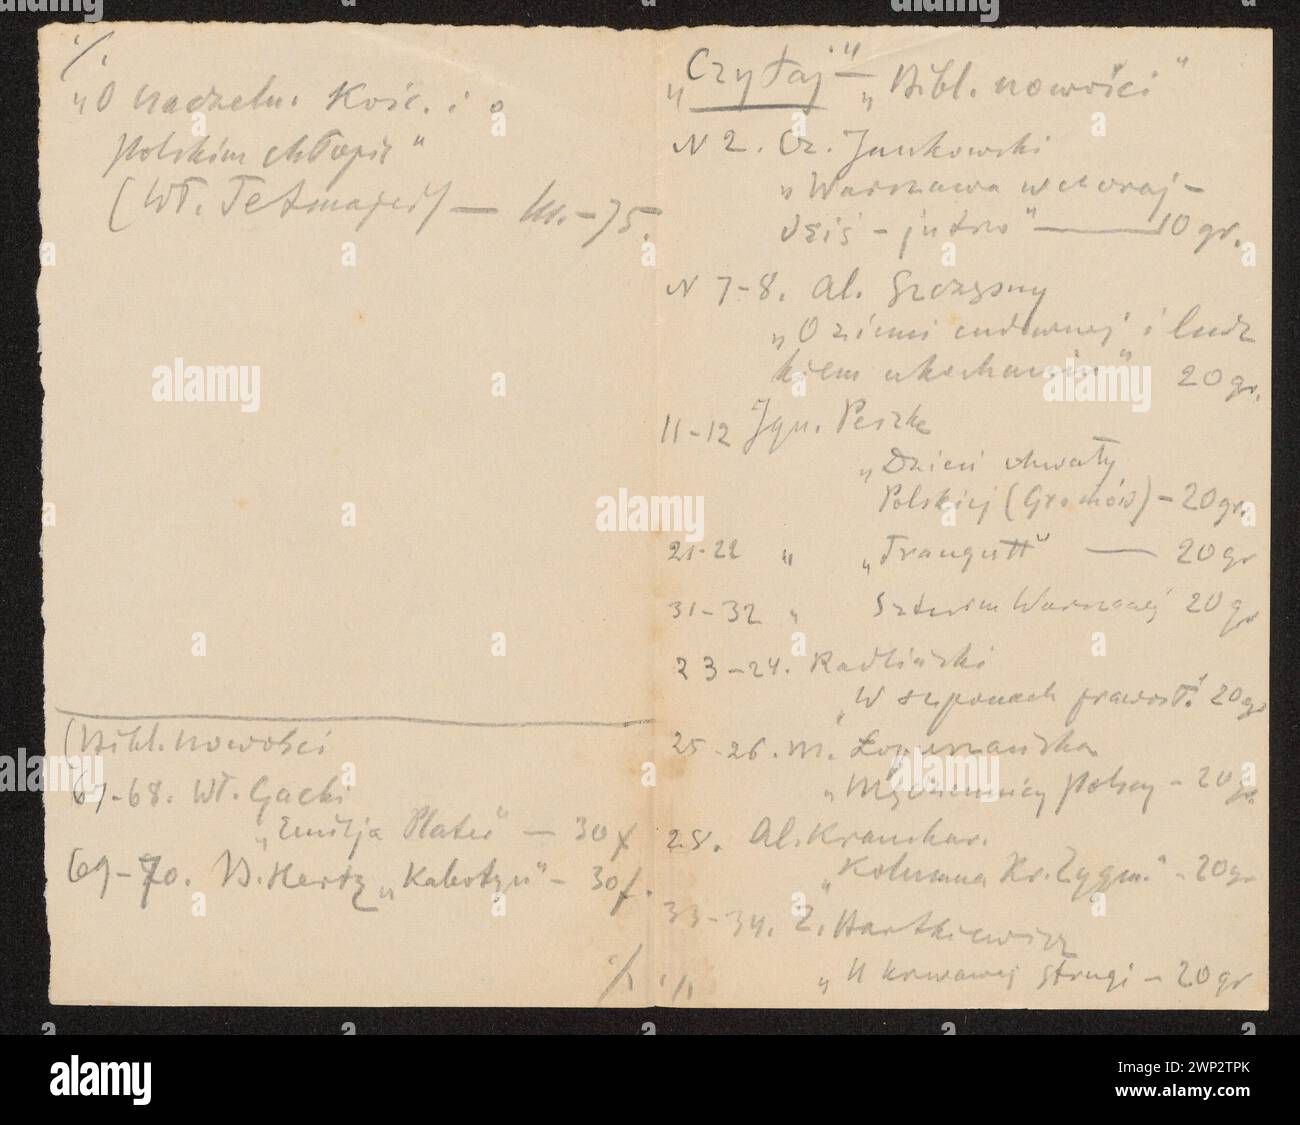 ·/.
„O naczeln. Kośc. i o
polskim chłopie"
(Wł. Tetmajer) — 75.
(Bibl. nowości
67-68. Wł. Gacki
„Emilja Plater" — 30 f
69-70. B. Hertz „Kabotyn" - 30 f.
·/.
„Czytaj" — „Bibl. nowości"
N 2. Cz. Jankowski
„Warszawa wczoraj -
dziś - jutro" — 10 gr.
N 7-8. Al. Szczęsny
„O ziemi cudownej i ludz
kiem ukochaniu" 20 gr.
11-12 Ign. Peszke
„Dzieci chwały
Polskiej (Grochów) - 20 gr.
21-22 " „Traugutt" — 20 gr
31-32 " Szturm Warszawy 20 gr
23-24. Radliński
„W szponach 20 gr
25-26. M. Łopuszańska
„Męczennicy Polscy - 20 gr
28. Al. Kraushar.
„Kolumna Kr. Zygm." - 20 gr
33-34. Z. Bartkiewicz
„U krwawej strugi - 20 gr
·/.
alamy
Image ID: 2WP2TPK
www.alamy.com